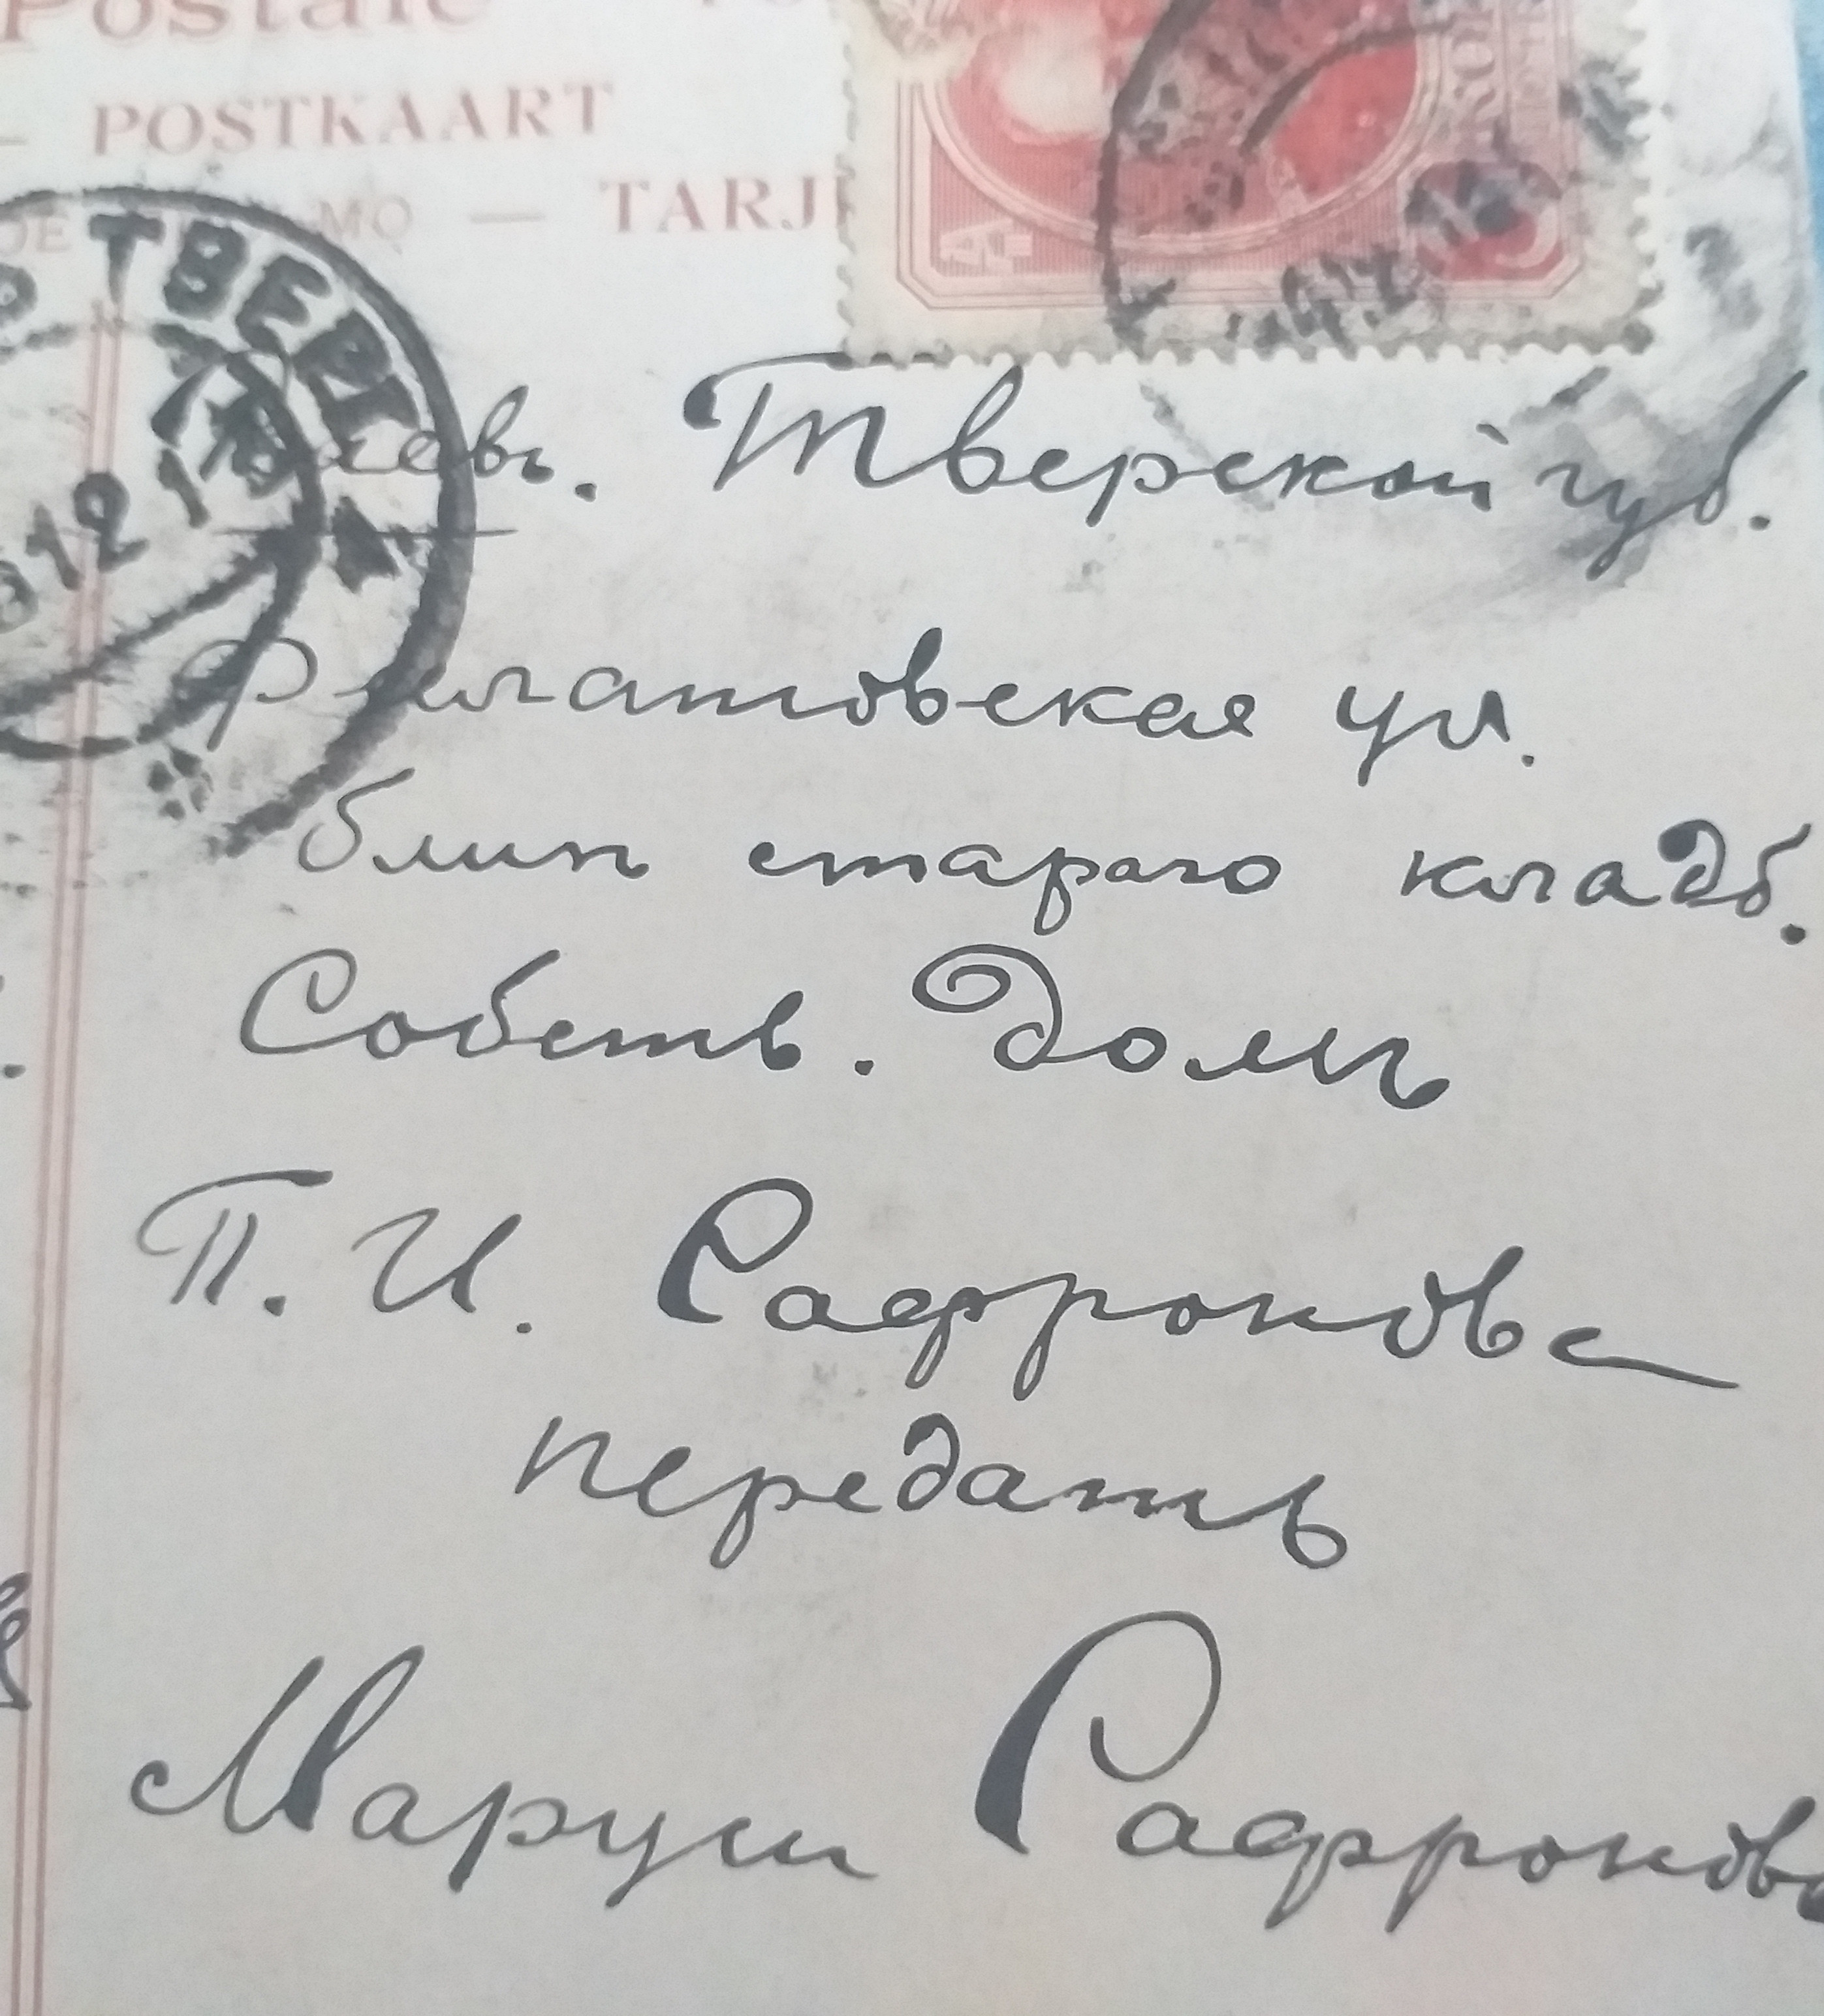 Postale
— POSTKAART
— TARJ
ТВЕРЬ
12
Тверской губ.
Филатовская ул.
близъ стараго кладб.
Собств. домъ
П. И. Сафронова
передать
Маруси Сафронов